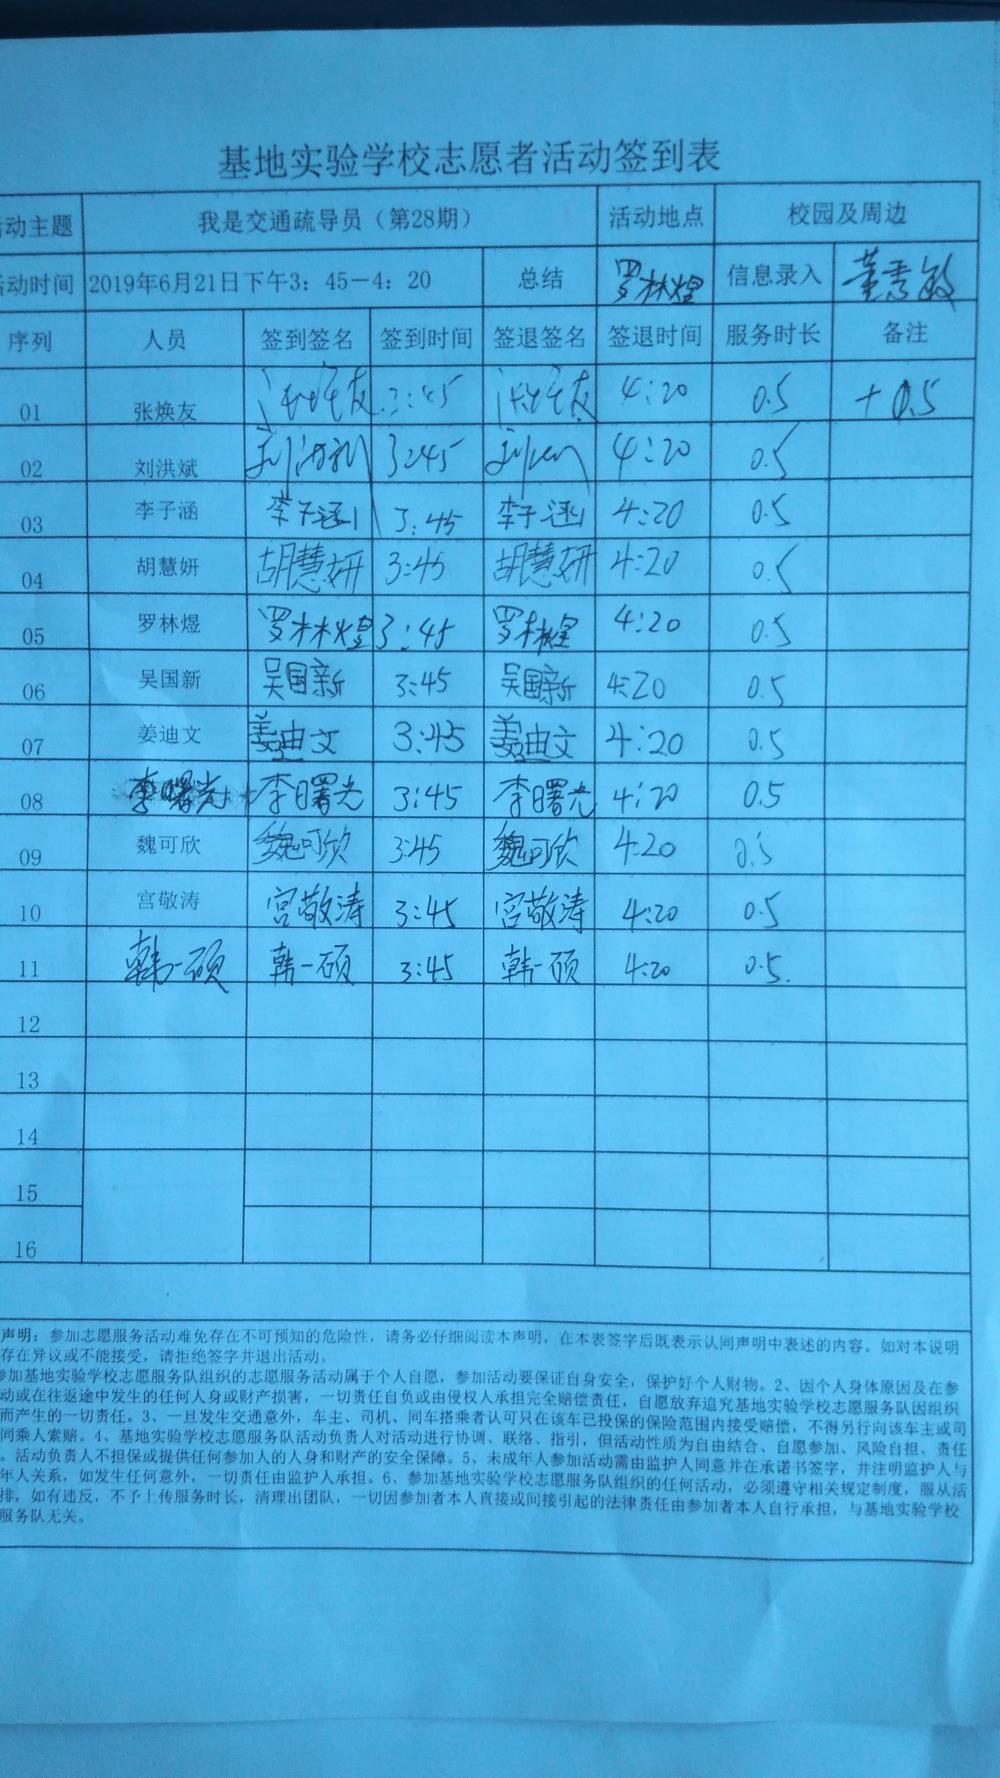 基地实验学校志愿者活动签到表
动主题 我是交通疏导员（第28期） 活动地点 校园及周边
活动时间 2019年6月21日下午3：45－4：20 总结 罗林煜 信息录入 董秀敏
序列 人员 签到签名 签到时间 签退签名 签退时间 服务时长 备注
01 张焕友 张焕友 3:45 张焕友 4:20 0.5 +0.5
02 刘洪斌 刘洪斌 3:45 4:20 0.5
03 李子涵 李子涵 3:45 李子涵 4:20 0.5
04 胡慧妍 胡慧妍 3:45 胡慧妍 4:20 0.5
05 罗林煜 罗林煜 3:45 罗林煜 4:20 0.5
06 吴国新 吴国新 3:45 吴国新 4:20 0.5
07 姜迪文 姜迪文 3:45 姜迪文 4:20 0.5
08 李曙光 李曙光 3:45 李曙光 4:20 0.5
09 魏可欣 魏可欣 3:45 魏可欣 4:20 0.5
10 宫敬涛 宫敬涛 3:45 宫敬涛 4:20 0.5
11 韩一硕 韩一硕 3:45 韩一硕 4:20 0.5.
12
13
14
15
16
声明：参加志愿服务活动难免存在不可预知的危险性，请务必仔细阅读本声明，在本表签字后既表示认同声明中表述的内容。如对本说明
存在异议或不能接受，请拒绝签字并退出活动。
参加基地实验学校志愿服务队组织的志愿服务活动属于个人自愿，参加活动要保证自身安全，保护好个人财物。2、因个人身体原因及在参
动或在往返途中发生的任何人身或财产损害，一切责任自负或由侵权人承担完全赔偿责任，自愿放弃追究基地实验学校志愿服务队因组织
而产生的一切责任。3、一旦发生交通意外，车主、司机、同车搭乘者认可只在该车已投保的保险范围内接受赔偿，不得另行向该车主或司
同乘人索赔。4、基地实验学校志愿服务队活动负责人对活动进行协调、联络、指引，但活动性质为自由结合、自愿参加、风险自担、责任
。活动负责人不担保或提供任何参加人的人身和财产的安全保障。5、未成年人参加活动需由监护人同意并在承诺书签字，并注明监护人与
年人关系，如发生任何意外，一切责任由监护人承担。6、参加基地实验学校志愿服务队组织的任何活动，必须遵守相关规定制度，服从活
排，如有违反，不予上传服务时长，清理出团队，一切因参加者本人直接或间接引起的法律责任由参加者本人自行承担，与基地实验学校
服务队无关。